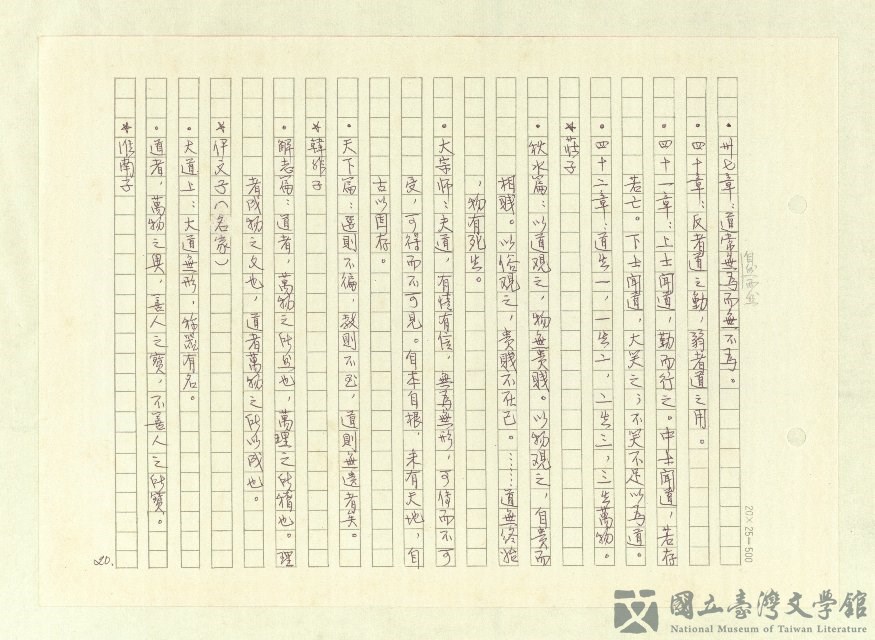 •卅七章：道常無為而無不為。
•四十章：反者道之動，弱者道之用。
•四十一章：上士聞道，勤而行之。中士聞道，若存
若亡。下士聞道，大笑之；不笑不足以為道。
•四十二章：道生一，一生二，二生三，三生萬物。
*莊子
•秋水篇：以道觀之，物無貴賤。以物觀之，自貴而
相賤。以俗觀之，貴賤不在己。……道無終始
，物有死生。
•大宗師：夫道，有情有信，無為無形，可傳而不可
受，可得而不可見。自本自根，未有天地，自
古以固存。
•天下篇：選則不徧，教則不至，道則無遺者矣。
*韓非子
•解老篇：道者，萬物之所然也，萬理之所稽也。理
者成物之文也，道者萬物之所以成也。
*伊文子（名家）
•大道上：大道無形，稱器有名。
•道者，萬物之奧，善人之寶，不善人之所寶。
*淮南子
20.
20×25=500
國立臺灣文學館
National Museum of Taiwan Literature